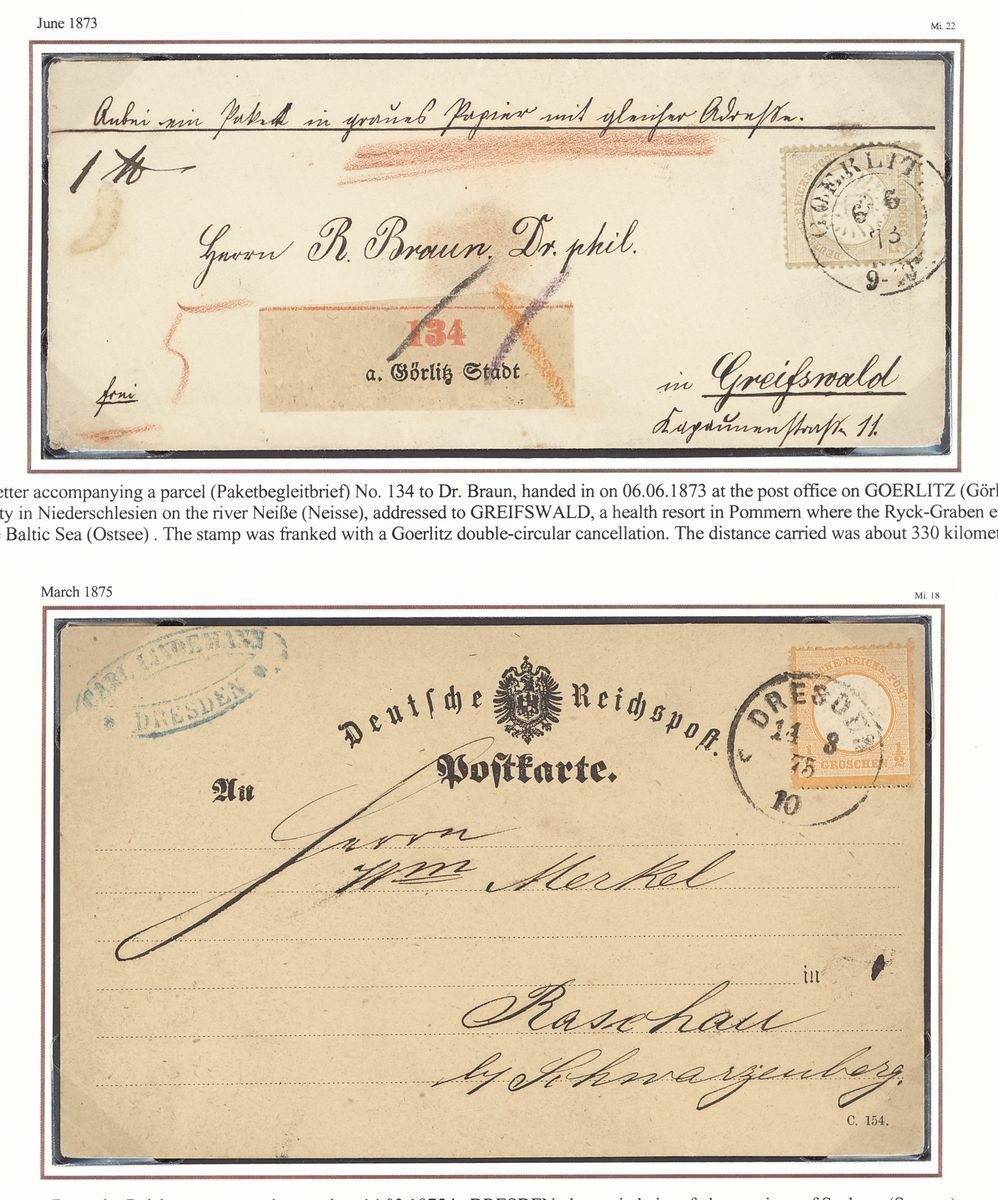 June 1873
Mi. 22
Anbei ein Paket in graues Papier mit gleicher Adresse.
1 ℔
GOERLITZ
6 6
73
9-10
Herrn R. Braun. Dr. phil.
5
134
a. Görlitz Stadt
frei
in Greifswald
Kapaunenstraße 11.
etter accompanying a parcel (Paketbegleitbrief) No. 134 to Dr. Braun, handed in on 06.06.1873 at the post office on GOERLITZ (Görl
ty in Niederschlesien on the river Neiße (Neisse), addressed to GREIFSWALD, a health resort in Pommern where the Ryck-Graben e
e Baltic Sea (Ostsee) . The stamp was franked with a Goerlitz double-circular cancellation. The distance carried was about 330 kilomet
March 1875
Mi. 18
CARL LINDEMANN
DRESDEN
Deutsche Reichspost.
Postkarte.
DRESDEN
14 3
75
10
REICHS-POST
1/2 GROSCHEN 1/2
An
Herrn
Wm Merkel
in
Raschau
b/ Schwarzenberg.
C. 154.